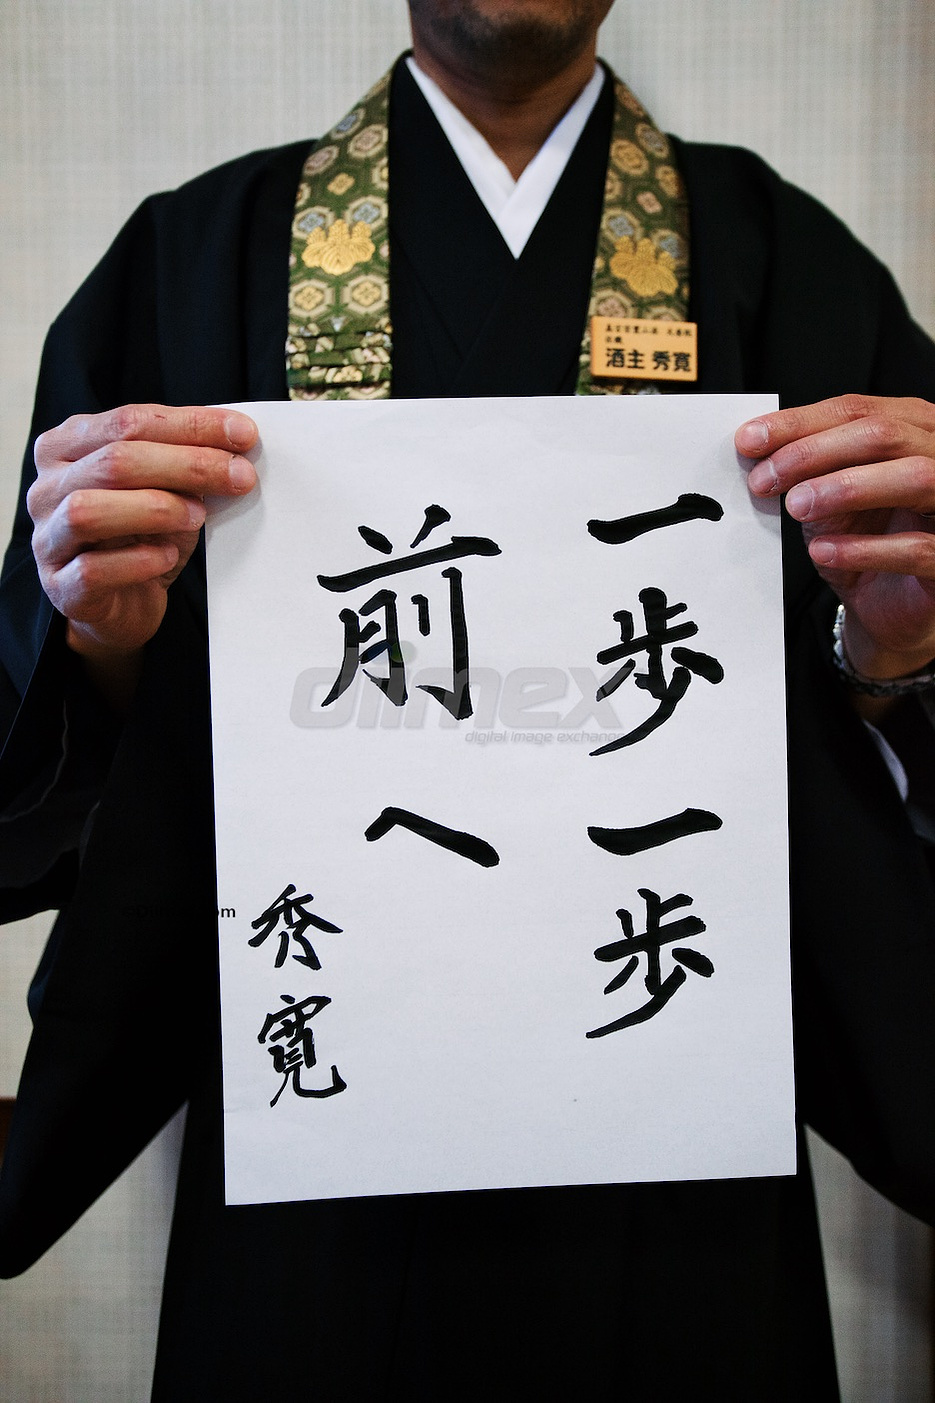 一歩一歩
前へ
秀寛
酒主 秀寛
dimex
digital image exchange